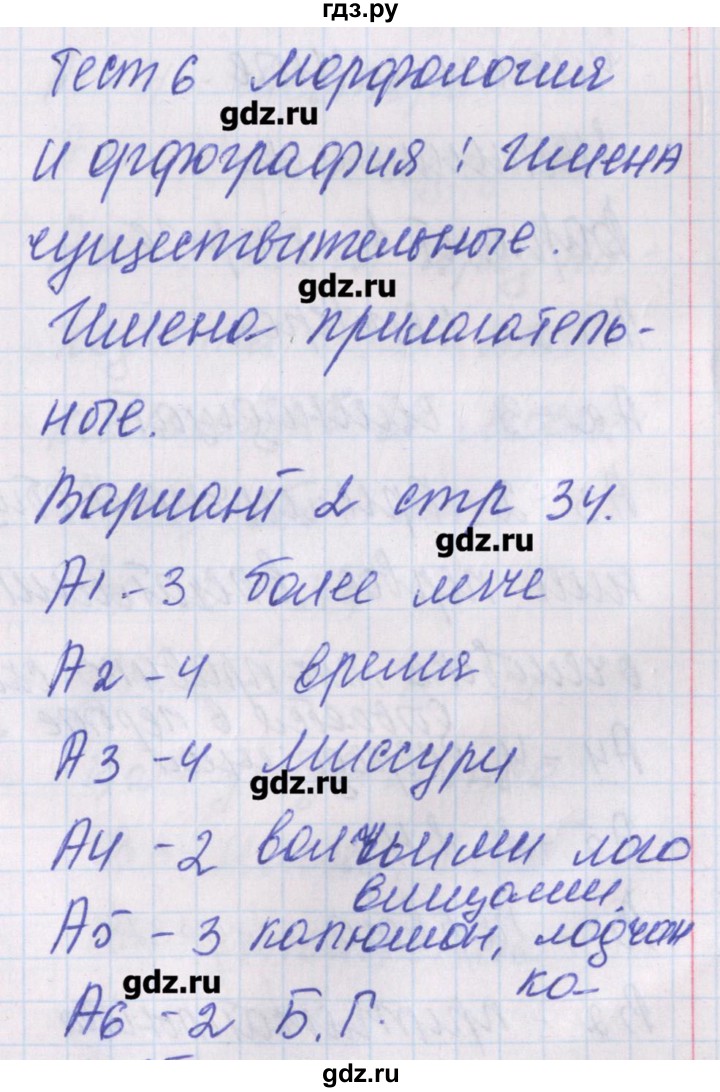 гдз.ру
Тест 6 Морфология
gdz.ru
и орфография: Имена
существительные.
gdz.ru
Имена прилагатель-
ные.
Вариант 2 стр 34.
gdz.ru
А1 - 3 более легче
А2 - 4 время
А3 - 4 Миссури
gdz.ru
А4 - 2 волчьими лого
вищами.
А5 - 3 капюшон, лодчон
ка-
gdz.ru
А6 - 2 Б. Г.
gdz.ru